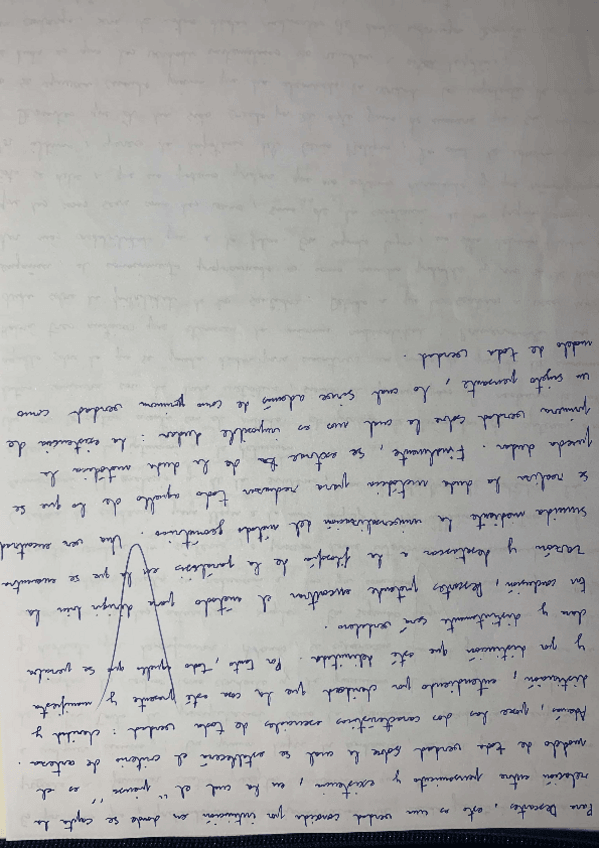 Para Descartes, esto es una verdad conocida por intuición en donde se capta la
relación entre pensamiento y existencia, en la cual el "pienso" es el
modelo de toda verdad sobre la cual se establecería el criterio de certeza.
Además, posee las dos características esenciales de toda verdad: claridad y
distinción, entendiendo por claridad que la cosa esté presente y manifiesta
y por distinción que esté delimitada. Por tanto, todo aquello que se perciba
clara y distintamente será verdadero.
En conclusión, Descartes pretende encontrar el método para dirigir bien la
razón y desatascar a la filosofía de la parálisis en la que se encuentra
sumida mediante la universalización del método geométrico. Una vez encontrado
se realiza la duda metódica para rechazar todo aquello de lo que se
pueda dudar. Finalmente, se extrae de la duda metódica la
primera verdad sobre la cual nos es imposible dudar: la existencia de
un sujeto pensante, lo cual sirve además de como primera verdad como
modelo de toda verdad.